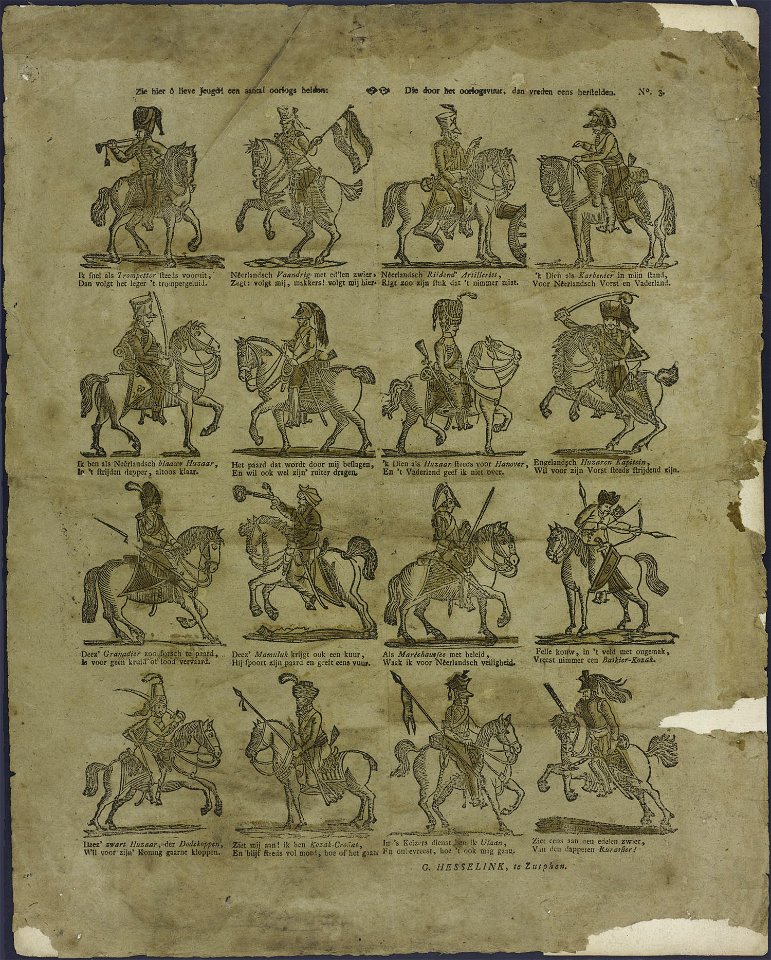 Zie hier ô lieve Jeugd! een aantal oorlogs helden: Die door het oorlogsvuur, dan vreden eens herstelden. N°. 3.
Ik snel als Trompetter steeds vooruit,
Dan volgt het leger 't trompergeluid.
Nêerlandsch Vaandrig met ed'len zwier,
Zegt: volgt mij, makkers! volgt mij hier.
Nêerlandsch Rijdend' Artillerist,
Rigt zoo zijn stuk dat 't nimmer mist.
'k Dien als Karbenier in mijn stand,
Voor Nêerlandsch Vorst en Vaderland.
Ik ben als Neêrlandsch blaauwe Huzaar,
In 't strijden dapper, altoos klaar.
Het paard dat wordt door mij beslagen,
En wil ook wel zijn' ruiter dragen.
'k Dien als Huzaar steeds voor Hanover,
En 't Vaderland geef ik niet over.
Engelandsch Huzaren Kapitein,
Wil voor zijn Vorst steeds strijdend zijn.
Deez' Granadier zoo fiersch te paard,
Is voor geen kruid of lood vervaard.
Deez' Mamuluk krijgt ook een kuur,
Hij spoort zijn paard en geeft eens vuur.
Als Maréchaussée met beleid,
Waak ik voor Nêerlandsch veiligheid.
Felle kouw, in 't veld met ongemak,
Vreest nimmer een Baskier-Kozak.
Deez' zwart Huzaar, der Dodekoppen,
Wil voor zijn' Koning gaarne kloppen.
Ziet mij aan! ik ben Kozak-Croaat,
En blijf steeds vol moed, hoe of het gaat.
In 's Keizers dienst ben ik Ulaan,
En onbevreest, hoe 't ook mag gaan.
Ziet eens aan een edelen zwier,
Van den dapperen Kurasfier!
G. HESSELINK, te Zutphen.